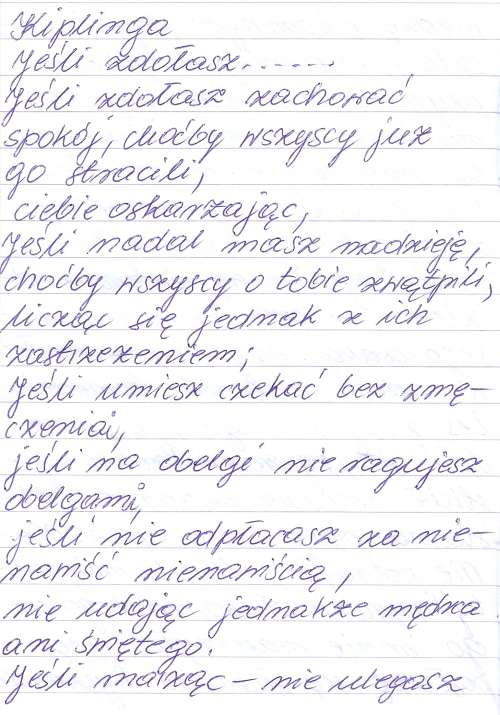 Kiplinga
Jeśli zdołasz.......
Jeśli zdołasz zachować
spokój, choćby wszyscy już
go stracili,
ciebie oskarżając,
Jeśli nadal masz nadzieję,
choćby wszyscy o tobie zwątpili,
licząc się jednak z ich
zastrzeżeniem;
Jeśli umiesz czekać bez zmę-
czenia,
jeśli na obelgi nie ragujesz
obelgami,
jeśli nie odpłacasz za nie-
nawiść nienawiścią,
nie udając jednakże mędrca
ani świętego.
Jeśli marząc - nie ulegasz